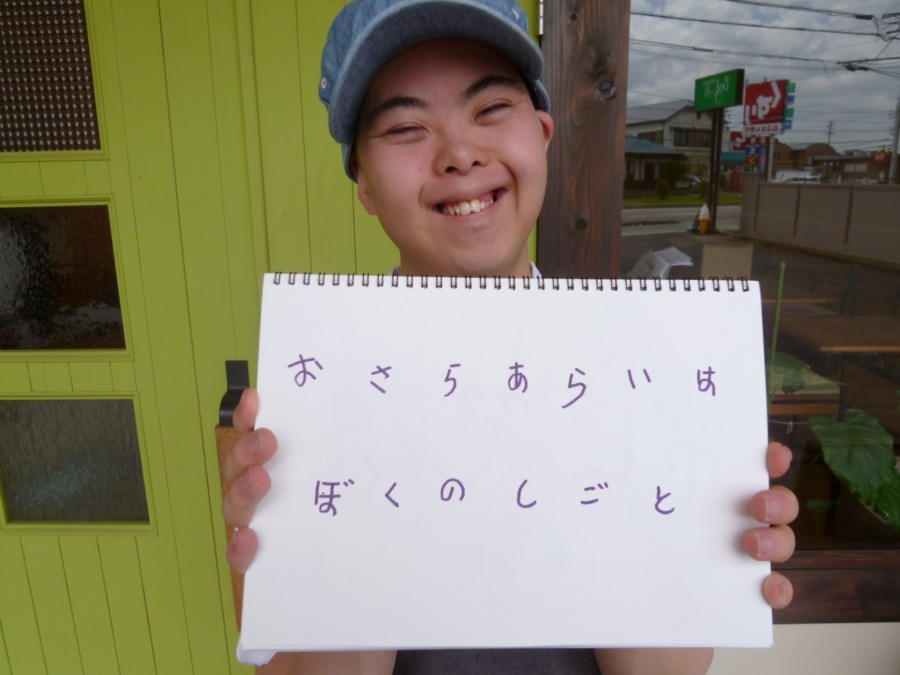 おさらあらいは
ぼくのしごと